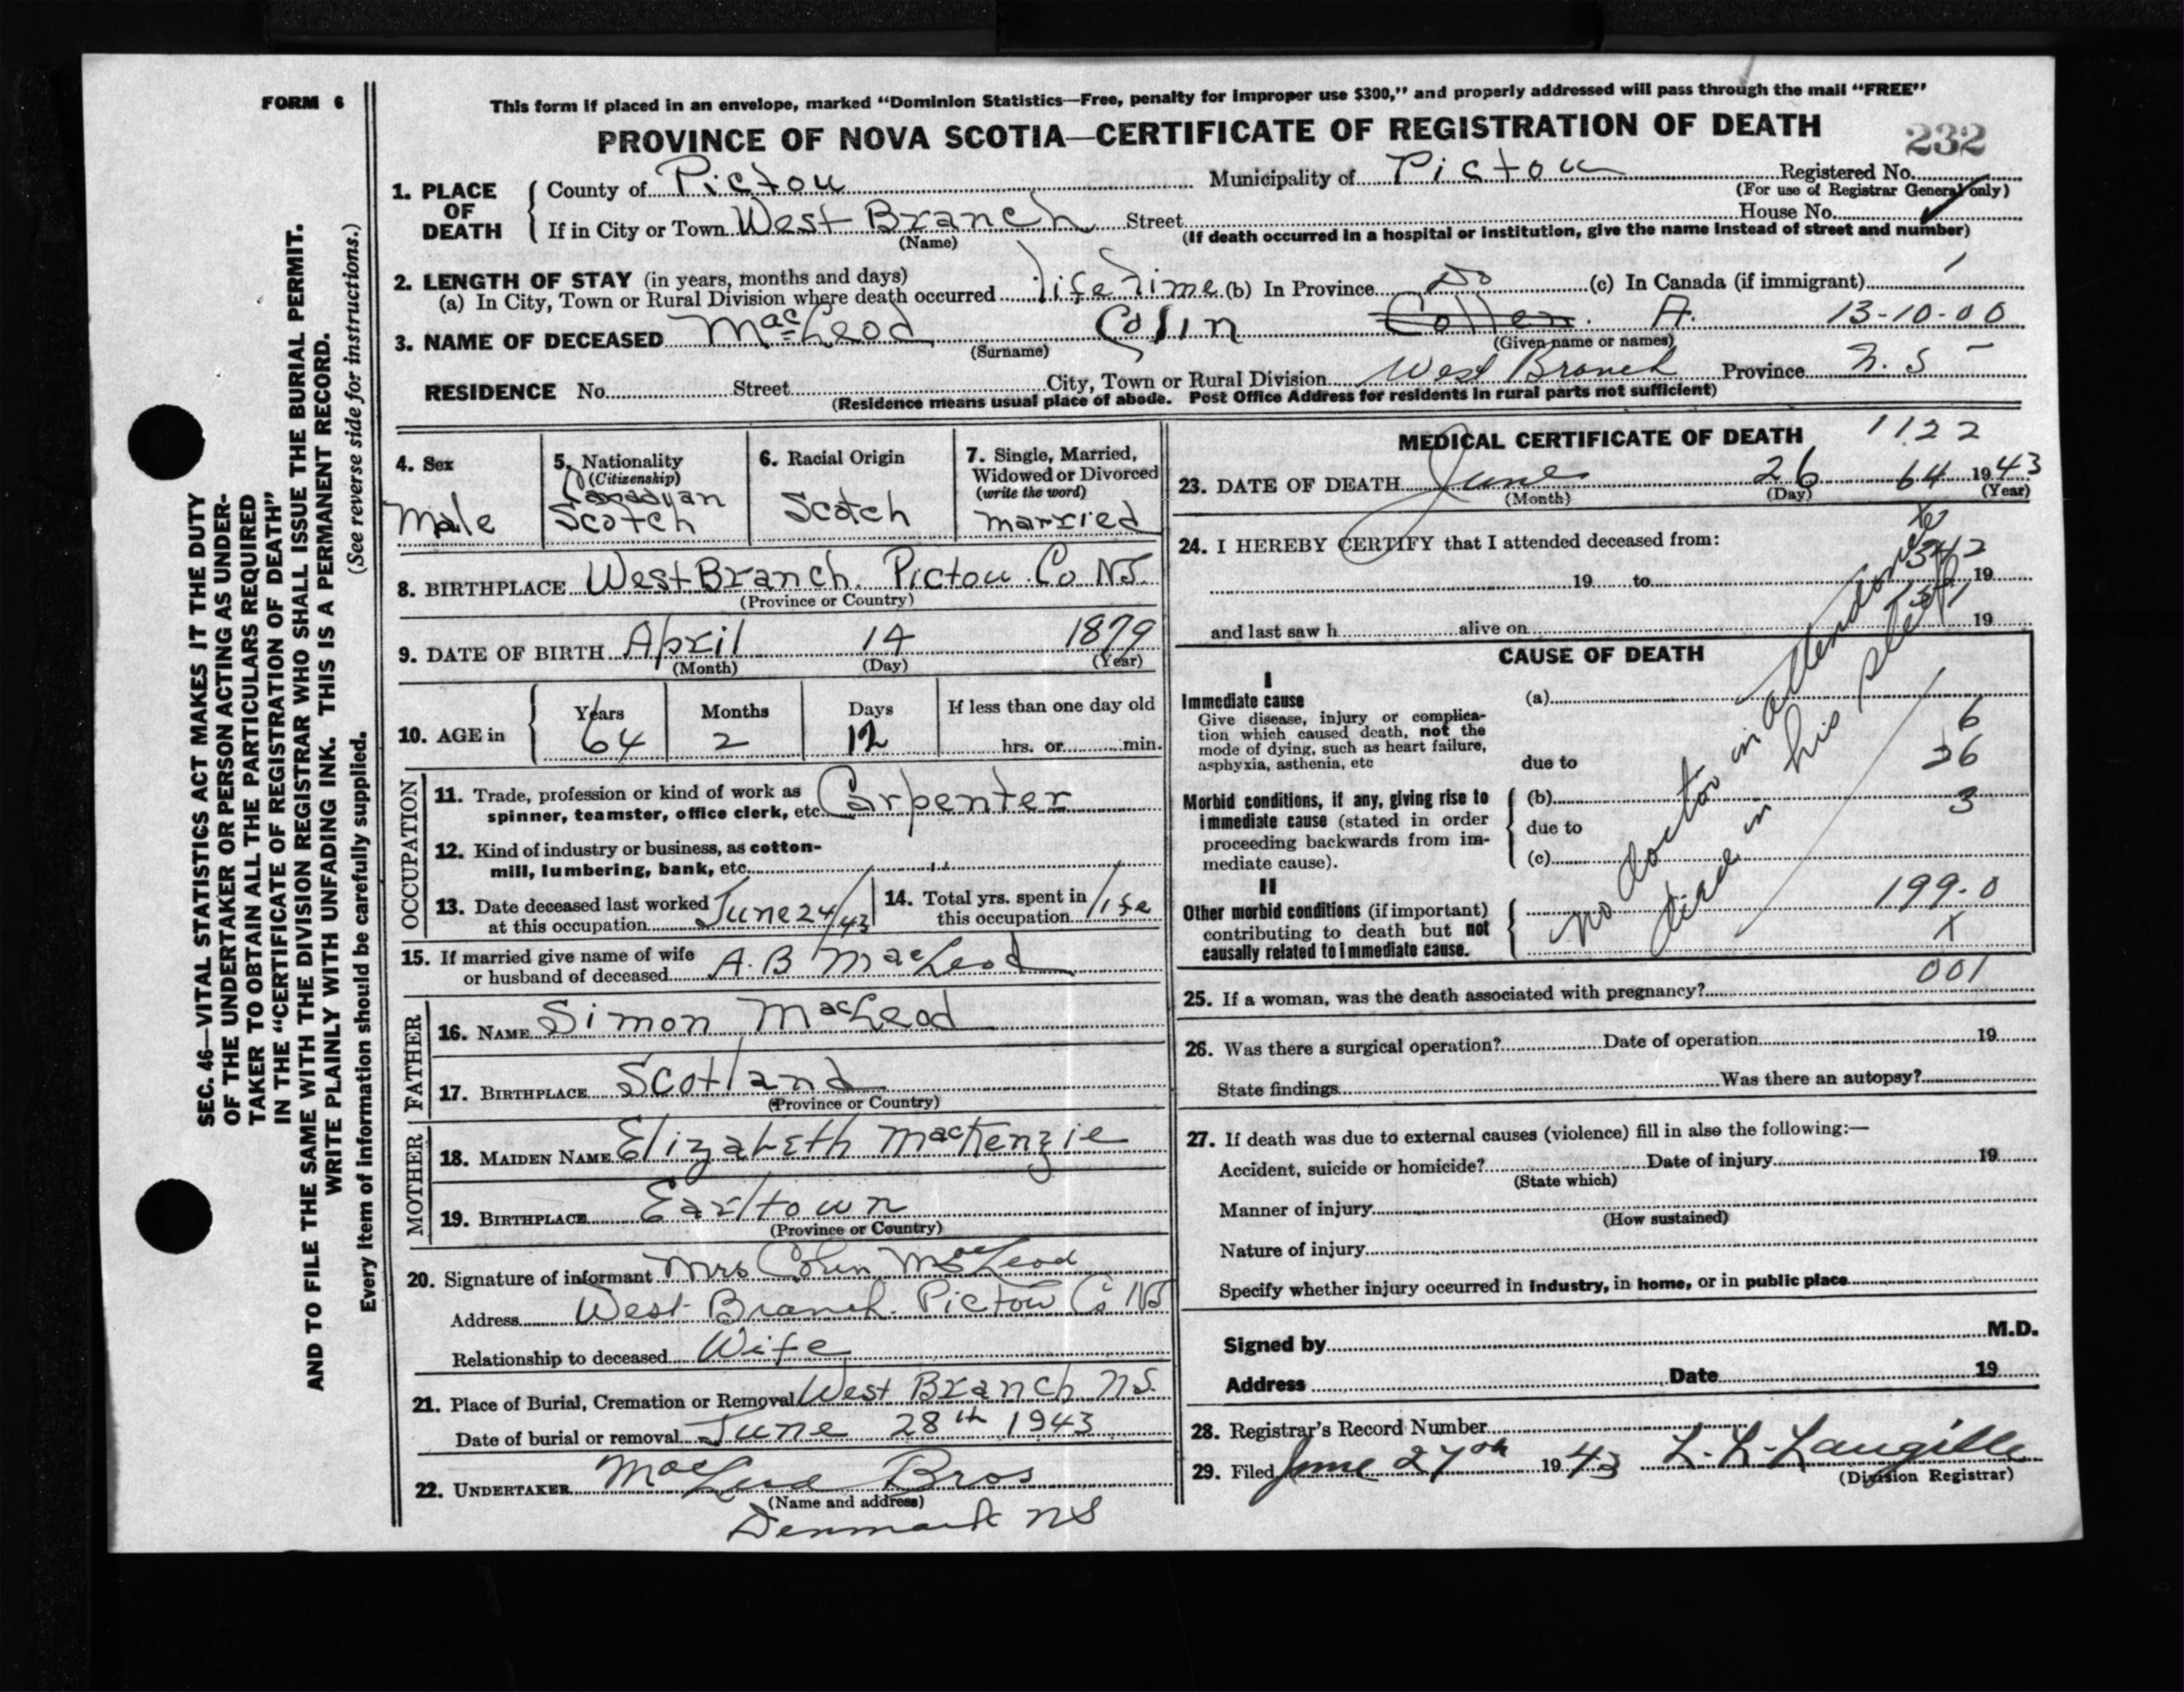 FORM 6
This form if placed in an envelope, marked “Dominion Statistics—Free, penalty for improper use $300,” and properly addressed will pass through the mail “FREE”
PROVINCE OF NOVA SCOTIA—CERTIFICATE OF REGISTRATION OF DEATH
232
1. PLACE OF DEATH
County of Pictou Municipality of Pictou Registered No.
(For use of Registrar General only)
If in City or Town West Branch Street House No.
(Name) (If death occurred in a hospital or institution, give the name instead of street and number)
2. LENGTH OF STAY (in years, months and days)
(a) In City, Town or Rural Division where death occurred life time (b) In Province Do (c) In Canada (if immigrant)
3. NAME OF DECEASED MacLeod Colin Collen A. 13-10-00
(Surname) (Given name or names)
RESIDENCE No. Street City, Town or Rural Division West Branch Province N.S
(Residence means usual place of abode. Post Office Address for residents in rural parts not sufficient)
4. Sex
Male
5. Nationality
(Citizenship)
Canadyan
Scotch
6. Racial Origin
Scotch
7. Single, Married,
Widowed or Divorced
(write the word)
married
8. BIRTHPLACE West Branch. Pictou Co NS.
(Province or Country)
9. DATE OF BIRTH April 14 1879
(Month) (Day) (Year)
10. AGE in
Years Months Days If less than one day old
64 2 12 hrs. or min.
OCCUPATION
11. Trade, profession or kind of work as
spinner, teamster, office clerk, etc. Carpenter
12. Kind of industry or business, as cotton-
mill, lumbering, bank, etc. ''
13. Date deceased last worked
at this occupation June 24/43
14. Total yrs. spent in
this occupation life
15. If married give name of wife
or husband of deceased A. B MacLeod
FATHER
16. NAME Simon MacLeod
17. BIRTHPLACE Scotland
(Province or Country)
MOTHER
18. MAIDEN NAME Elizabeth MacKenzie
19. BIRTHPLACE Earltown
(Province or Country)
20. Signature of informant Mrs Colin MacLeod
Address West Branch. Pictou Co NS
Relationship to deceased Wife
21. Place of Burial, Cremation or Removal West Branch NS.
Date of burial or removal June 28th 1943
22. UNDERTAKER MacLeod Bros
(Name and address)
Denmark NS
MEDICAL CERTIFICATE OF DEATH 1122
23. DATE OF DEATH June 26 64 1943
(Month) (Day) (Year)
24. I HEREBY CERTIFY that I attended deceased from:
19 to 19
and last saw h alive on 19
CAUSE OF DEATH
I
Immediate cause
Give disease, injury or complica-
tion which caused death, not the
mode of dying, such as heart failure,
asphyxia, asthenia, etc
(a)
due to
Morbid conditions, if any, giving rise to
immediate cause (stated in order
proceeding backwards from im-
mediate cause).
(b)
due to
(c)
II
Other morbid conditions (if important)
contributing to death but not
causally related to immediate cause.
no doctor in attendance
died in his sleep
6
26
3
199-0
X
001
25. If a woman, was the death associated with pregnancy?
26. Was there a surgical operation? Date of operation 19
State findings Was there an autopsy?
27. If death was due to external causes (violence) fill in also the following:—
Accident, suicide or homicide? Date of injury 19
(State which)
Manner of injury
(How sustained)
Nature of injury
Specify whether injury occurred in industry, in home, or in public place
Signed by M.D.
Address Date 19
28. Registrar's Record Number
29. Filed June 27th 1943 L. L. Langille
(Division Registrar)
SEC. 46—VITAL STATISTICS ACT MAKES IT THE DUTY
OF THE UNDERTAKER OR PERSON ACTING AS UNDER-
TAKER TO OBTAIN ALL THE PARTICULARS REQUIRED
IN THE “CERTIFICATE OF REGISTRATION OF DEATH”
AND TO FILE THE SAME WITH THE DIVISION REGISTRAR WHO SHALL ISSUE THE BURIAL PERMIT.
WRITE PLAINLY WITH UNFADING INK. THIS IS A PERMANENT RECORD.
(See reverse side for instructions.)
Every item of information should be carefully supplied.